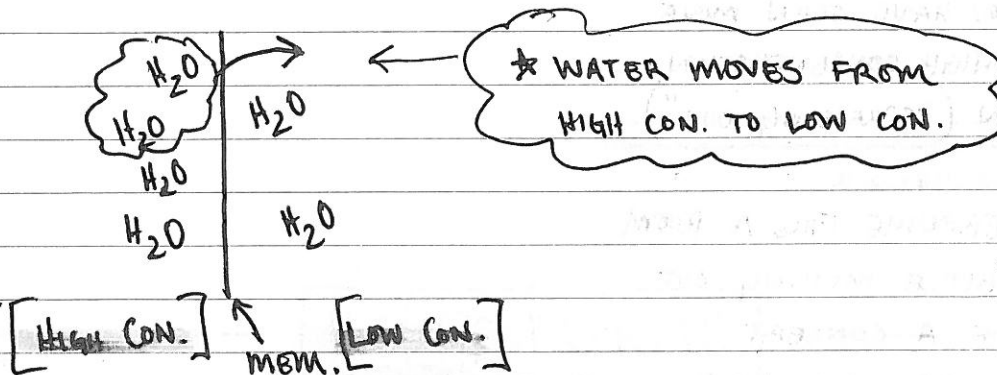 H₂O
H₂O
H₂O
H₂O
H₂O
H₂O
★ WATER MOVES FROM
HIGH CON. TO LOW CON.
[HIGH CON.]
MEM.
[LOW CON.]